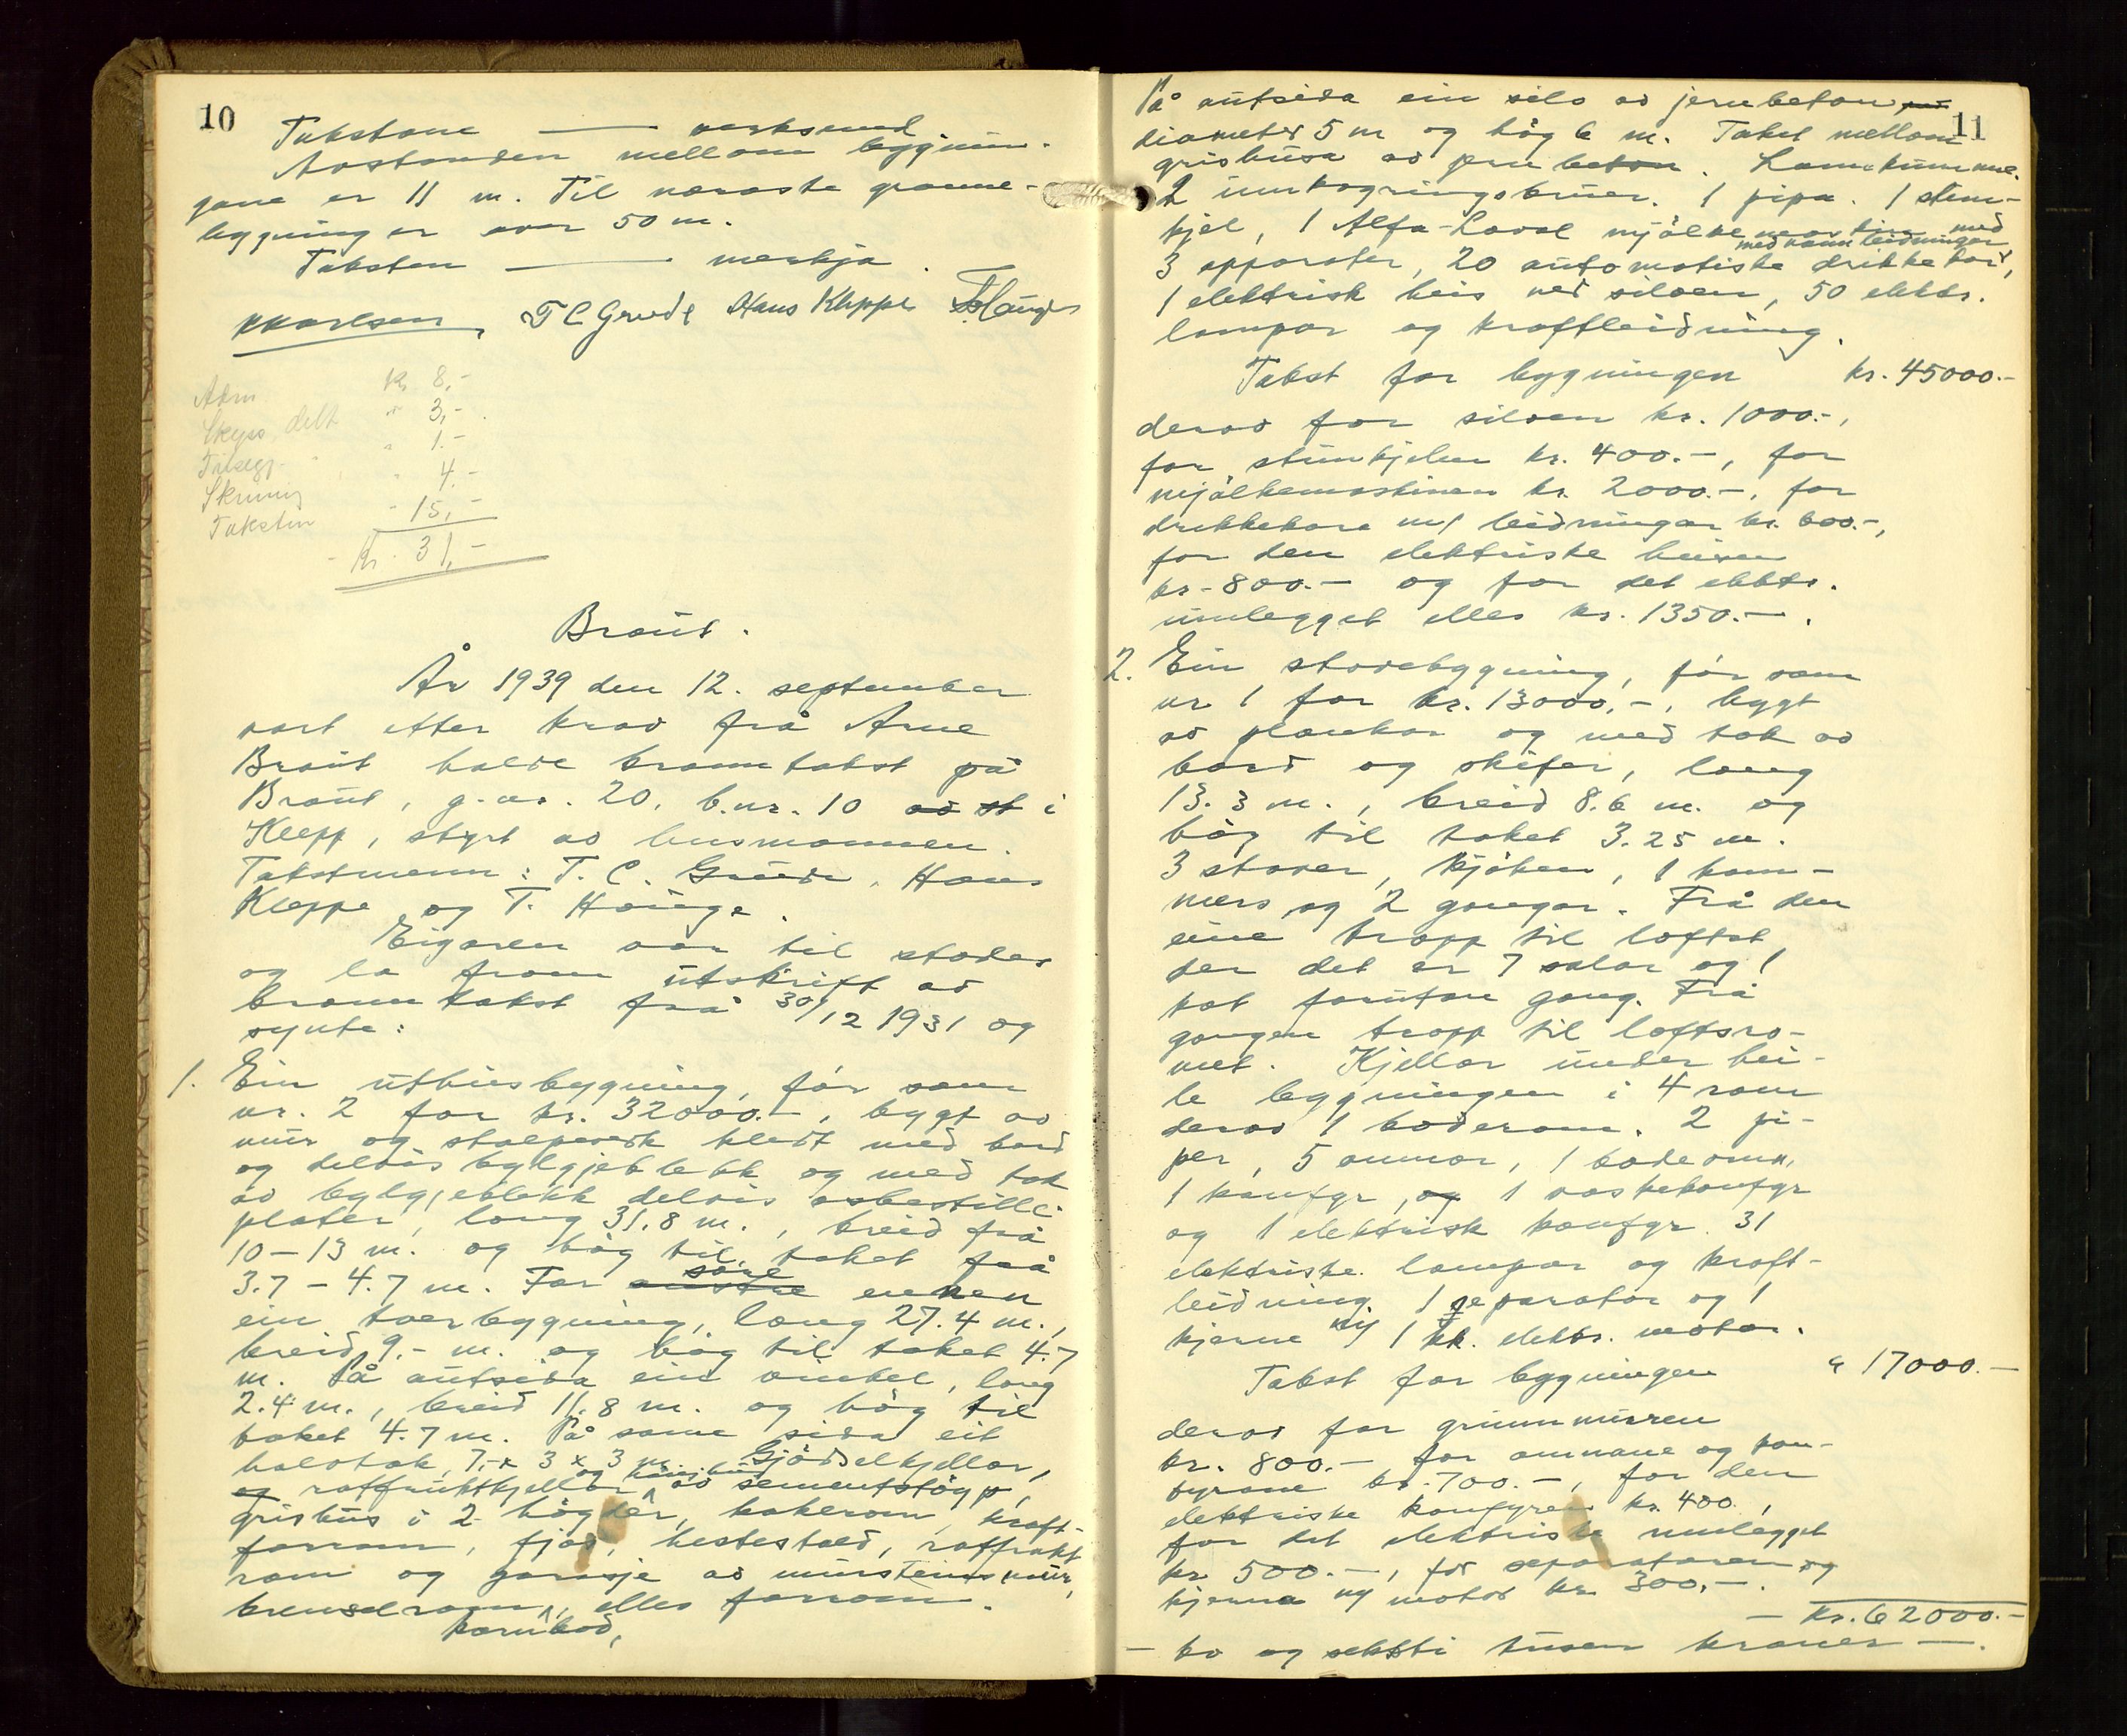 10
Takstane — verksemd
Avstanden mellom bygnin-
gane er 11 m. Til næraste granne-
bygning er over 50 m.
Taksten — merkja.
T C Grude Hans Kleppe
kr 8,-
Skyss delt " 3,-
" 1.-
" 4.-
Skrivning - 15,-
Taksten
Kr. 31,-
Braut.
År 1939 den 12. september
vart etter krav frå Arne
Braut halde branntakst på
Braut, g.nr. 20, b.nr. 10 av st i
Klepp, styrt av lensmannen.
Takstmenn: T. C. Grude, Hans
Kleppe og T. Hauge.
Eigaren var til stades
og la fram utskrift av
branntakst frå 30/12 1931 og
synte:
1. Ein uthusbygning, før som
nr. 2 for kr. 32000.-, bygt av
mur og stolpeverk kledt med bord
og delvis bylgjeblekk og med tak
av bylgjeblekk delvis asbestille-
plater, lang 31.8 m., breid frå
10-13 m. og høg til taket frå
3.7-4.7 m. For austre søre enden
ein tverbygning, lang 27.4 m.,
breid 9.- m. og høg til taket 4.7
m. På autsida ein vinkel, lang
2.4 m., breid 11.8 m. og høg til
taket 4.7 m. På same sida eit
halvtak 7,- x 3 x 3 m. Gjødselkjellar,
og rotfruktkjellar og hønsehus av sementstøyp,
grishus i 2 høgder, kokerom, kraft-
forrom, fjøs, hestestall, rotfrukt
rom og garasje av mursteinsmur,
brenselrom, kornbod, elles forrom.
11
På autsida ein silo av jernbeton, med
diameter 5 m og høg 6 m. Taket mellom
grishusa av jernbeton. Landkummme.
2 innkøyringsbruer. 1 pipa. 1 stim-
kjel, 1 Alfa-Laval mjølkemaskin med
3 apparater, 20 automatiske drikkekar med vannleidningar,
1 elektrisk heis ved siloen, 50 elektr.
lampor og kraftleidning.
Takst for bygningen kr. 45000.-
derav for siloen kr. 1000.-,
for stimkjelen kr. 400.-, for
mjølkemaskinen kr. 2000.-, for
drikkekara m/ leidningar kr. 600.-,
for den elektriske heisen
kr. 800.- og for det elektr.
innlegget elles kr. 1350.-.
2. Ein stovebygning, før som
nr 1 for kr. 13000,-, bygt
av plankar og med tak av
bord og skifer, lang
13.3 m., breid 8.6 m. og
høg til taket 3.25 m.
3 stover, kjøken, 1 kam-
mers og 2 gangar. Frå den
eine tropp til loftet,
der det er 7 salar og 1
kot forutan gang. Frå
gangen tropp til loftsro-
met. Kjellar under hei-
le bygningen i 4 rom
derav 1 baderom. 2 pi-
per, 5 omnar, 1 badeomn,
1 komfyr, og 1 vaskekomfyr
og 1 elektrisk komfyr. 31
elektriske lampor og kraft-
leidning. 1 separator og 1
kjerne m/ 1 hk. elektr. motor.
Takst for bygningen " 17000.-
derav for grunnmuren
kr. 800.- for omnane og kom-
fyrane kr. 700.-, for den
elektriske komfyren kr. 400.,
for det elektriske innlegget
kr 500.-, for separatoren og
kjerna m/ motor kr. 300,-.
- kr. 62000.-
- to og seksti tusen kroner -.